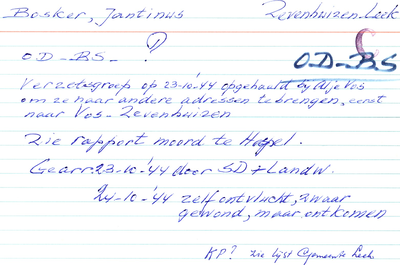 Bosker, Jantinus Zevenhuizen-Leek
OD-BS- ?
O.D-BS
Verzetsgroep op 23-10-'44 opgehaald bij Vos
om ze naar andere adressen te brengen, eerst
naar Vos-Zevenhuizen
Zie rapport moord te
Gearr. 23-10-'44 door SD + Landw.
24-10-'44 zelf ontvlucht, zwaar
gewond, maar ontkomen
KP? zie lijst Gemeente Leek